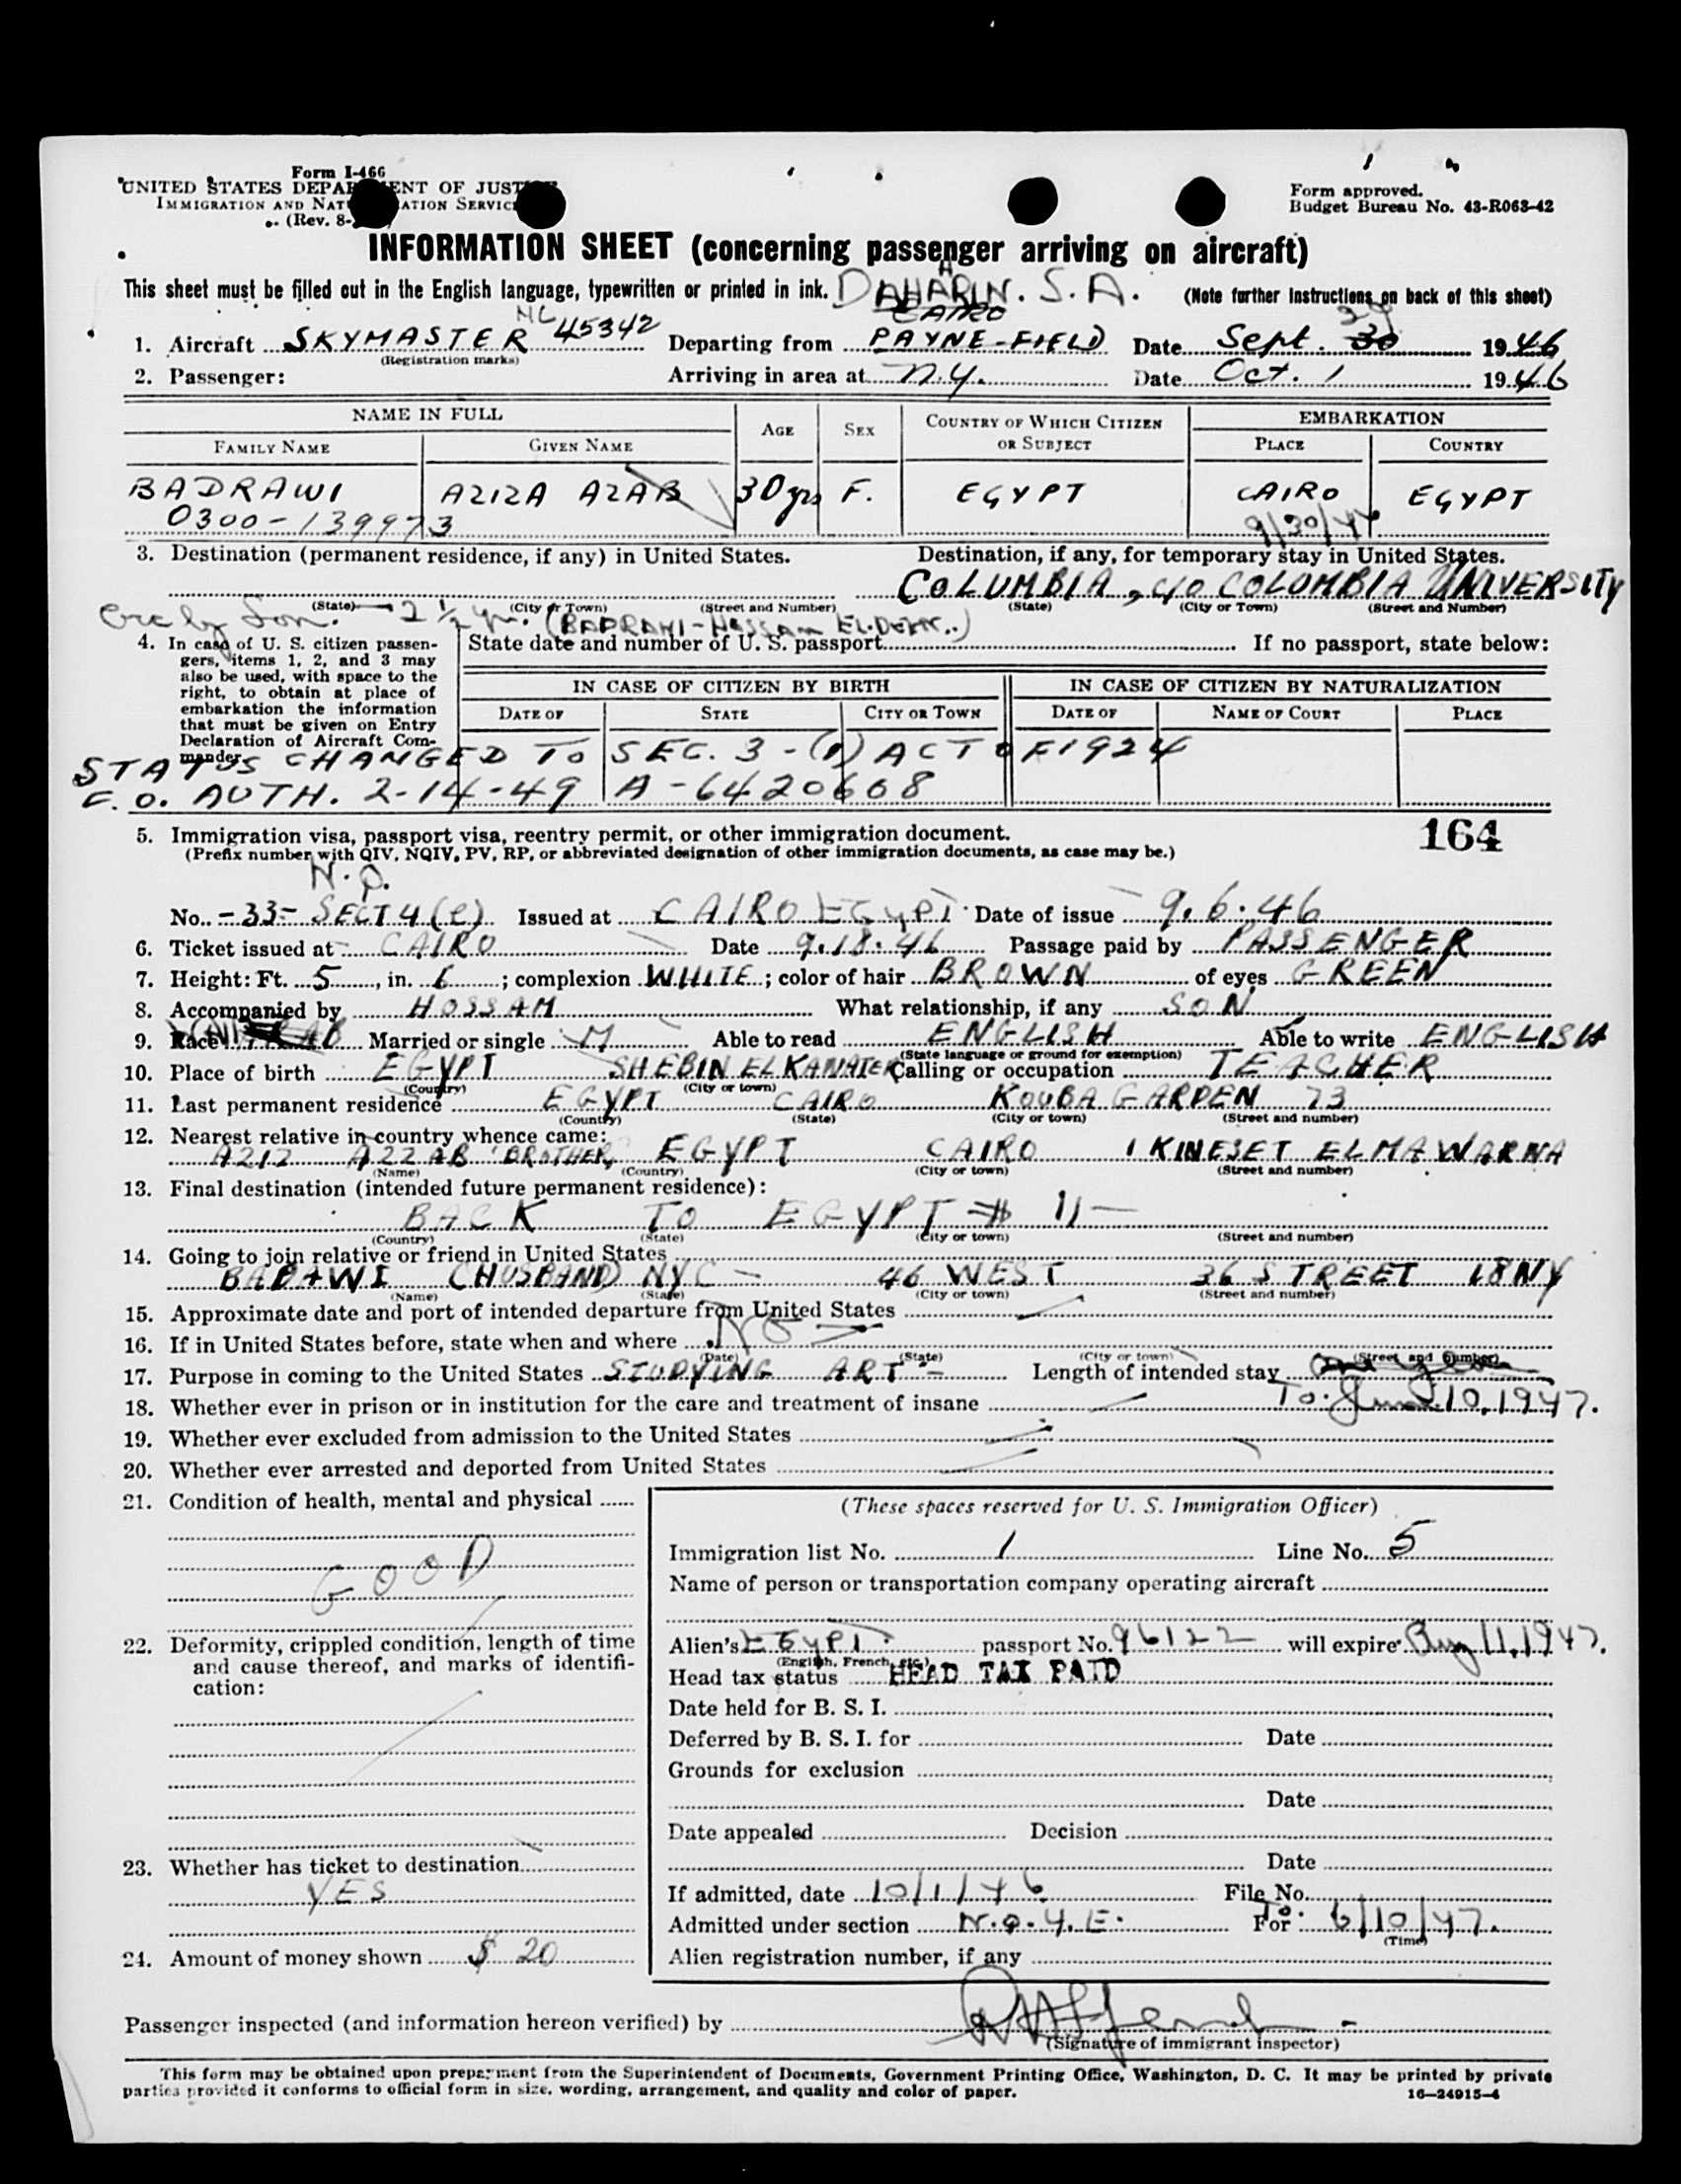 Form I-466
UNITED STATES DEPARTMENT OF JUSTICE
IMMIGRATION AND NATURALIZATION SERVICE
(Rev. 8-
Form approved.
Budget Bureau No. 43-R063-42
INFORMATION SHEET (concerning passenger arriving on aircraft)
This sheet must be filled out in the English language, typewritten or printed in ink. DAHARIN. S. A. (Note further instructions on back of this sheet)
CAIRO
1. Aircraft SKYMASTER NC 45342 Departing from PAYNE-FIELD Date Sept. 30 29 1946
(Registration marks)
2. Passenger: Arriving in area at N.Y. Date Oct. 1 1946
NAME IN FULL AGE SEX COUNTRY OF WHICH CITIZEN OR SUBJECT EMBARKATION
FAMILY NAME GIVEN NAME PLACE COUNTRY
BADRAWI AZIZA AZAB 30 yrs F. EGYPT CAIRO EGYPT
0300-139973 9/30/46
3. Destination (permanent residence, if any) in United States. Destination, if any, for temporary stay in United States.
COLUMBIA, c/o COLUMBIA UNIVERSITY
(State) (City or Town) (Street and Number) (State) (City or Town) (Street and Number)
Son. 2 1/2 yr. (BADRAWI-HOSSAM EL.DEEN..)
4. In case of U. S. citizen passengers, items 1, 2, and 3 may also be used, with space to the right, to obtain at place of embarkation the information that must be given on Entry Declaration of Aircraft Commander.
State date and number of U. S. passport If no passport, state below:
IN CASE OF CITIZEN BY BIRTH IN CASE OF CITIZEN BY NATURALIZATION
DATE OF STATE CITY OR TOWN DATE OF NAME OF COURT PLACE
STATUS CHANGED TO SEC. 3-(1) ACT OF 1924
C.O. AUTH. 2-14-49 A-6420608
164
5. Immigration visa, passport visa, reentry permit, or other immigration document.
(Prefix number with QIV, NQIV, PV, RP, or abbreviated designation of other immigration documents, as case may be.)
N.Q.
No. -33- SECT 4(e) Issued at CAIRO EGYPT Date of issue 9.6.46
6. Ticket issued at CAIRO Date 9.18.46 Passage paid by PASSENGER
7. Height: Ft. 5, in. 6; complexion WHITE; color of hair BROWN of eyes GREEN
8. Accompanied by HOSSAM What relationship, if any SON
9. Race Married or single M Able to read ENGLISH Able to write ENGLISH
(State language or ground for exemption)
10. Place of birth EGYPT SHEBIN EL KANATER Calling or occupation TEACHER
(Country) (City or town)
11. Last permanent residence EGYPT CAIRO KOUBA GARDEN 73
(Country) (State) (City or town) (Street and number)
12. Nearest relative in country whence came:
AZIZ AZZAB BROTHER, EGYPT CAIRO 1 KINESET ELMAWARNA
(Name) (Country) (City or town) (Street and number)
13. Final destination (intended future permanent residence):
BACK TO EGYPT # 11-
(Country) (State) (City or town) (Street and number)
14. Going to join relative or friend in United States
BADAWI (HUSBAND) NYC - 46 WEST 36 STREET 18 NY
(Name) (State) (City or town) (Street and number)
15. Approximate date and port of intended departure from United States
16. If in United States before, state when and where NO
(Date) (State) (City or town) (Street and number)
17. Purpose in coming to the United States STUDYING ART - Length of intended stay One year
To: June 10, 1947.
18. Whether ever in prison or in institution for the care and treatment of insane
19. Whether ever excluded from admission to the United States
20. Whether ever arrested and deported from United States
21. Condition of health, mental and physical
GOOD
22. Deformity, crippled condition, length of time and cause thereof, and marks of identification:
23. Whether has ticket to destination
YES
24. Amount of money shown $ 20
(These spaces reserved for U. S. Immigration Officer)
Immigration list No. 1 Line No. 5
Name of person or transportation company operating aircraft
Alien's EGYPT. passport No. 96122 will expire Aug 11, 1947.
(English, French, etc.)
Head tax status HEAD TAX PAID
Date held for B. S. I.
Deferred by B. S. I. for Date
Grounds for exclusion
Date
Date appealed Decision
Date
If admitted, date 10/1/46 File No.
Admitted under section N.Q.4.E. For To: 6/10/47.
(Time)
Alien registration number, if any
Passenger inspected (and information hereon verified) by
(Signature of immigrant inspector)
This form may be obtained upon prepayment from the Superintendent of Documents, Government Printing Office, Washington, D. C. It may be printed by private
parties provided it conforms to official form in size, wording, arrangement, and quality and color of paper.
16-24915-4